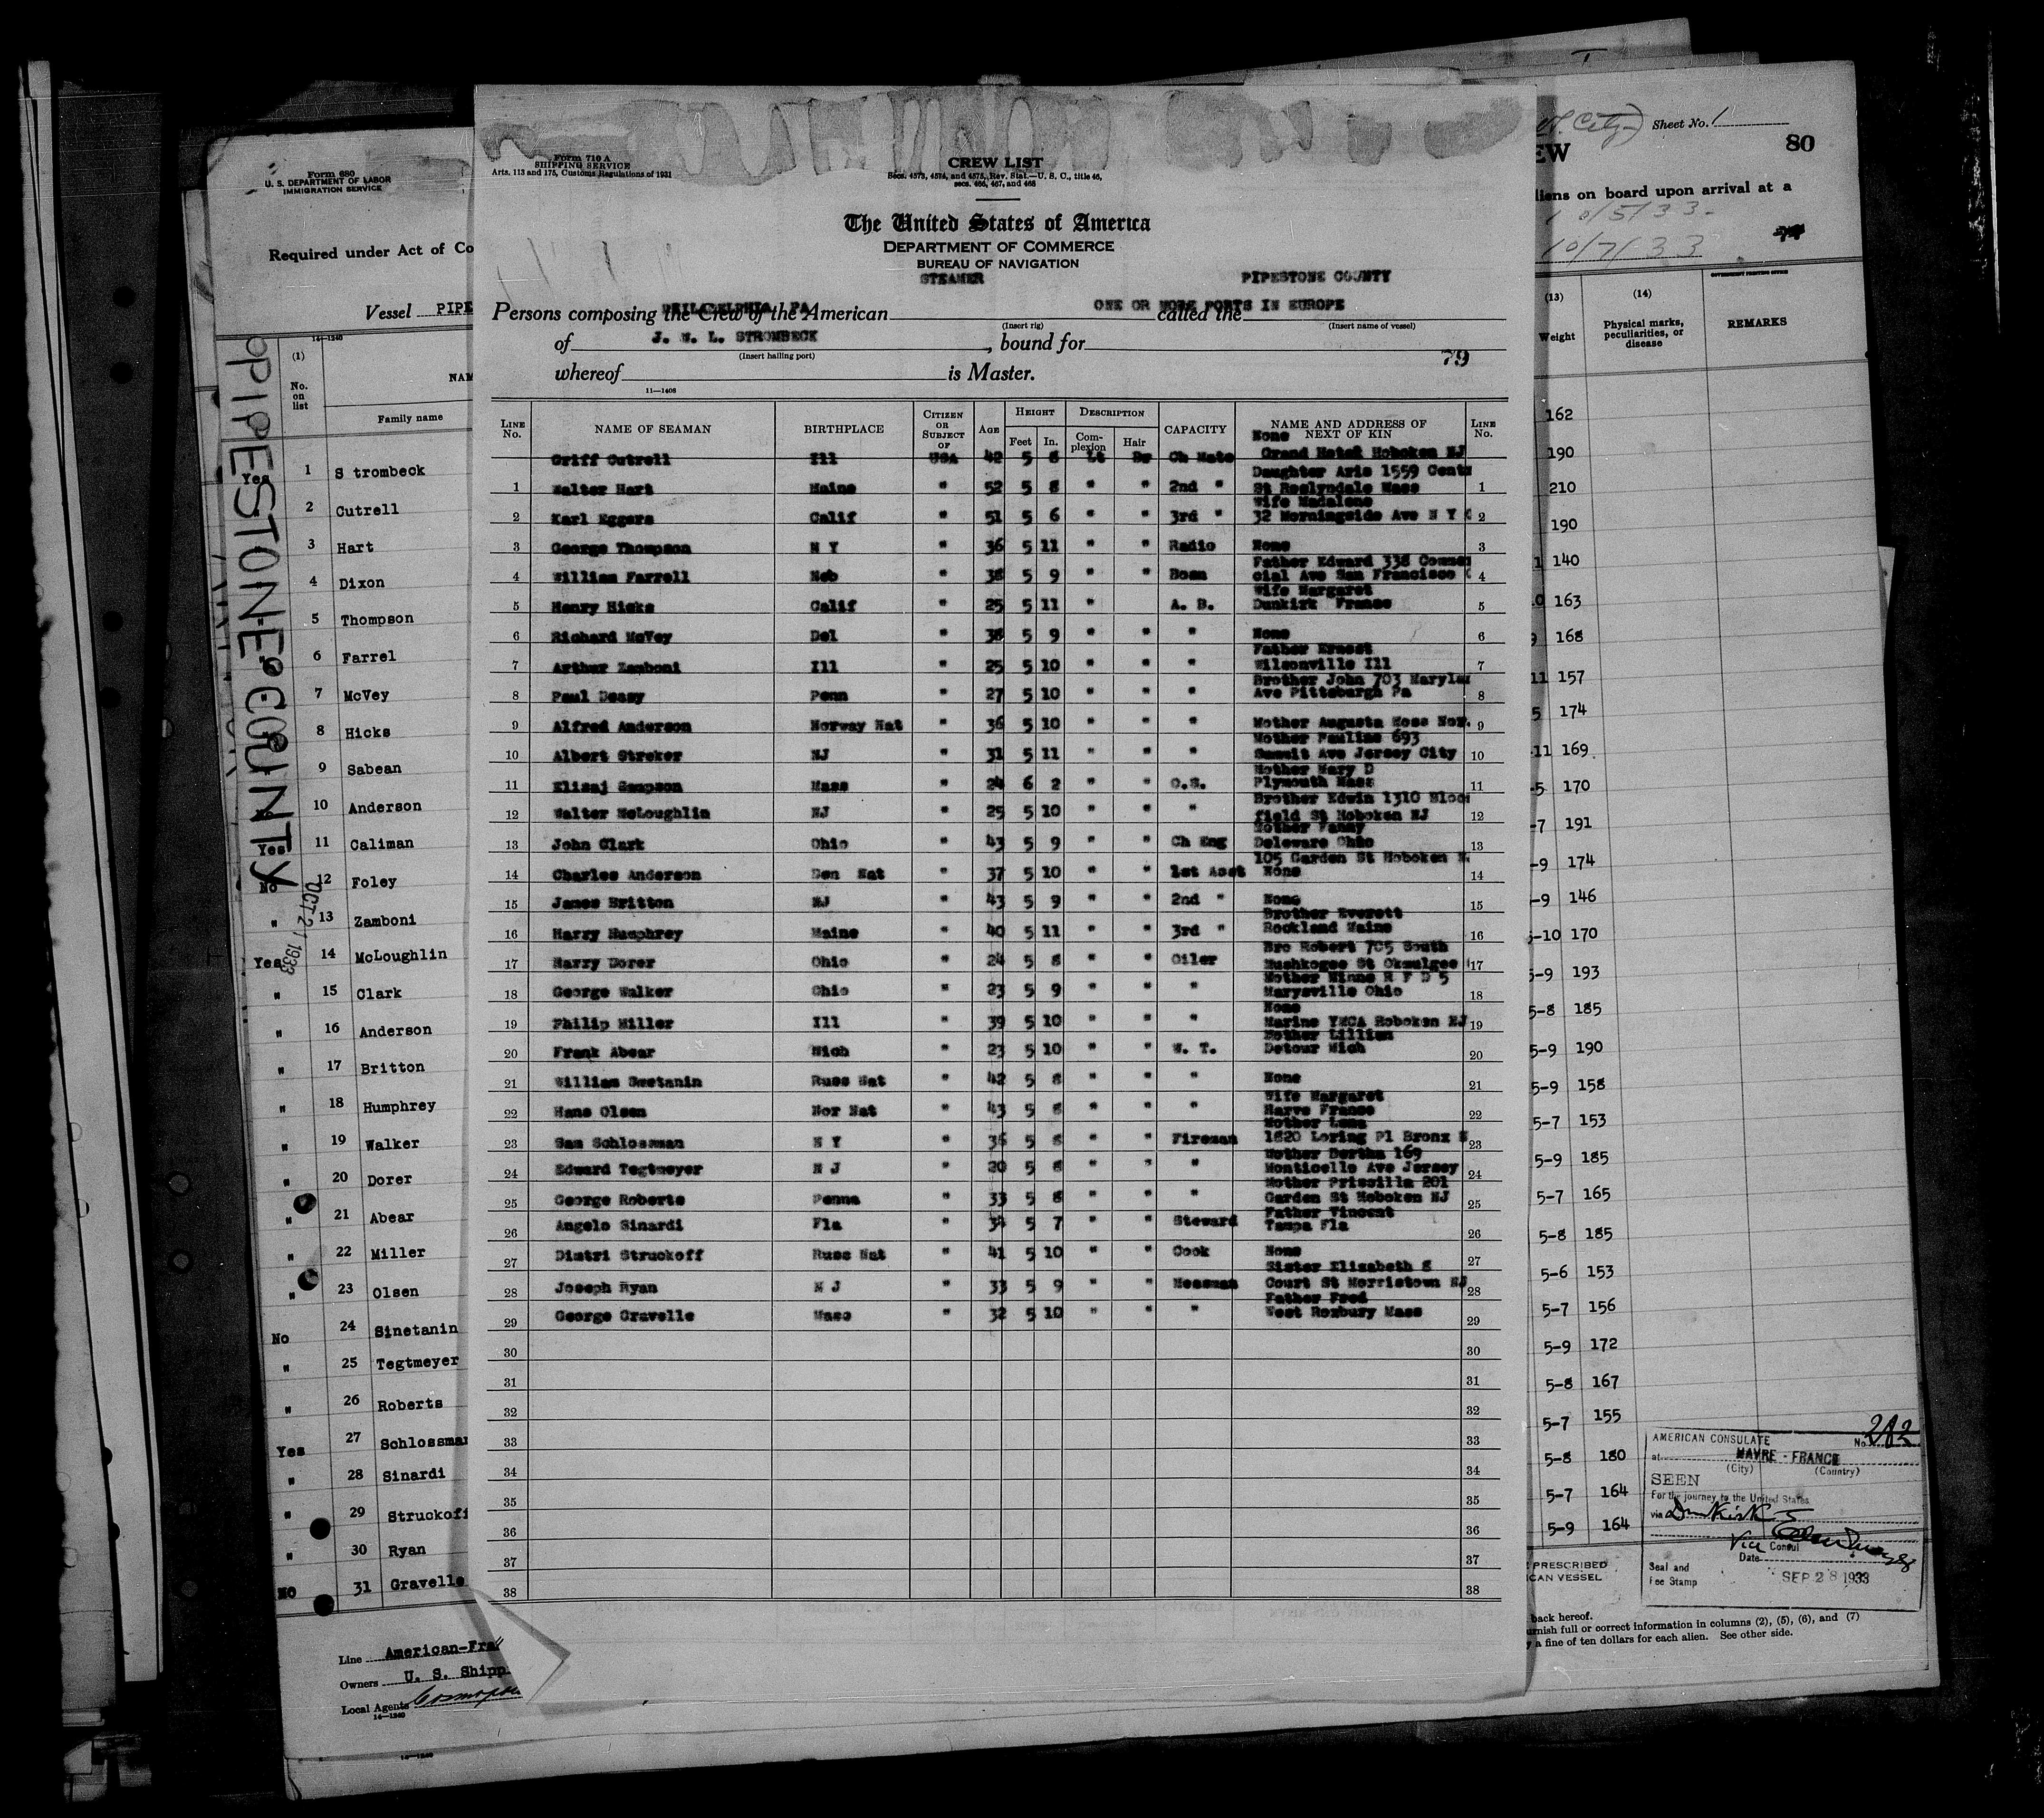 Form 680
U. S. DEPARTMENT OF LABOR
IMMIGRATION SERVICE
Required under Act of Co
Vessel PIPE
14—1240
(1)
No. on list
NAM
Family name
PIPESTONE COUNTY
OCT 2 1 1933
Yes 1 Strombeck
2 Cutrell
3 Hart
4 Dixon
5 Thompson
6 Farrel
7 McVey
8 Hicks
9 Sabean
10 Anderson
Yes 11 Caliman
No 12 Foley
" 13 Zamboni
Yes 14 McLoughlin
" 15 Clark
" 16 Anderson
" 17 Britton
" 18 Humphrey
" 19 Walker
" 20 Dorer
" 21 Abear
" 22 Miller
" 23 Olsen
No 24 Sinetanin
" 25 Tegtmeyer
" 26 Roberts
Yes 27 Schlossman
" 28 Sinardi
" 29 Struckoff
" 30 Ryan
No 31 Gravelle
Line American-Fra
Owners U. S. Shipp
Local Agents Cosmopol
14—1240
Form 710 A
SHIPPING SERVICE
Arts. 113 and 175, Customs Regulations of 1931
CREW LIST
Secs. 4573, 4574, and 4575, Rev. Stat.—U. S. C., title 46,
secs. 466, 467, and 468
The United States of America
DEPARTMENT OF COMMERCE
BUREAU OF NAVIGATION
STEAMER PIPESTONE COUNTY
Persons composing the Crew of the American called the
PHILADELPHIA, PA ONE OR MORE PORTS IN EUROPE
(Insert rig) (Insert name of vessel)
of J. W. L. STROMBECK, bound for
(Insert hailing port)
79
whereof is Master.
11—1408
LINE No. NAME OF SEAMAN BIRTHPLACE CITIZEN OR SUBJECT OF AGE HEIGHT Feet In. DESCRIPTION Complexion Hair CAPACITY NAME AND ADDRESS OF NEXT OF KIN LINE No.
None
Griff Cutrell Ill USA 42 5 8 Lt Br Ch Mate Grand Hotel Hoboken NJ
Daughter Aris 1559 Centr
1 Walter Hart Maine " 52 5 8 " " 2nd " St Roslyndale Mass 1
Wife Madalene
2 Karl Eggers Calif " 51 5 6 " " 3rd " 32 Morningside Ave N Y 2
3 George Thompson N Y " 36 5 11 " " Radio None 3
Father Edward 338 Commer
4 William Farrell Neb " 38 5 9 " " Bosn cial Ave San Francisco 4
Wife Margaret
5 Henry Hicks Calif " 25 5 11 " A. B. Dunkirk France 5
6 Richard McVey Del " 38 5 9 " " " None 6
Father Ernest
7 Arthur Zamboni Ill " 25 5 10 " " " Wilsonville Ill 7
Brother John 703 Maryla
8 Paul Deasy Penn " 27 5 10 " " " Ave Pittsburgh Pa 8
9 Alfred Anderson Norway Nat " 36 5 10 " " " Mother Augusta Moss Nor. 9
Mother Pauline 693
10 Albert Streker NJ " 31 5 11 " " " Summit Ave Jersey City 10
Mother Mary D
11 Elisaj Sampson Mass " 24 6 2 " " O.S. Plymouth Mass 11
Brother Edwin 1310 Bloom
12 Walter McLoughlin NJ " 25 5 10 " " " field St Hoboken NJ 12
Mother Fanny
13 John Clark Ohio " 43 5 9 " " Ch Eng Deleware Ohio 13
105 Garden St Hoboken N
14 Charles Anderson Den Nat " 37 5 10 " " 1st Asst None 14
15 James Britton NJ " 43 5 9 " " 2nd " None 15
Brother Everett
16 Harry Humphrey Maine " 40 5 11 " " 3rd " Rockland Maine 16
Bro Robert 705 South
17 Harry Dorer Ohio " 24 5 8 " " Oiler Mushkogee St Okmulgee 17
Mother Minne R F D 5
18 George Walker Ohio " 23 5 9 " " " Marysville Ohio 18
None
19 Philip Miller Ill " 39 5 10 " " " Marine YMCA Hoboken NJ 19
Mother Lillian
20 Frank Abear Mich " 23 5 10 " " W. T. Detour Mich 20
21 William Smetanin Russ Nat " 42 5 8 " " " None 21
Wife Margaret
22 Hans Olsen Nor Nat " 43 5 8 " " " Harve France 22
Mother Lena
23 Sam Schlossman N Y " 36 5 8 " " Fireman 1820 Loring Pl Bronx N 23
Mother Bertha 169
24 Edward Tegtmeyer N J " 20 5 8 " " " Monticello Ave Jersey 24
Mother Priscilla 201
25 George Roberts Penna " 33 5 8 " " " Garden St Hoboken NJ 25
Father Vincent
26 Angelo Sinardi Fla " 34 5 7 " " Steward Tampa Fla 26
27 Dimtri Struckoff Russ Nat " 41 5 10 " " Cook None 27
Sister Elizabeth 8
28 Joseph Ryan N J " 33 5 9 " " Messman Court St Morristown NJ 28
Father Fred
29 George Gravelle Mass " 32 5 10 " " " West Roxbury Mass 29
30 30
31 31
32 32
33 33
34 34
35 35
36 36
37 37
38 38
City) Sheet No. 1
EW 80
liens on board upon arrival at a
10/5/33
10/7/33
(13) (14)
Weight Physical marks, peculiarities, or disease REMARKS
GOVERNMENT PRINTING OFFICE
162
190
210
190
140
163
168
157
174
11 169
-5 170
-7 191
-9 174
-9 146
-10 170
5-9 193
5-8 185
5-9 190
5-9 158
5-7 153
5-9 185
5-7 165
5-8 185
5-6 153
5-7 156
5-9 172
5-8 167
5-7 155
5-8 180
5-7 164
5-9 164
AMERICAN CONSULATE No. 282
at HAVRE - FRANCE
(City) (Country)
SEEN
For the journey to the United States
via Dunkirk
Vice Consul
Date SEP 28 1933
Seal and
Fee Stamp
PRESCRIBED
ICAN VESSEL
back hereof.
urnish full or correct information in columns (2), (5), (6), and (7)
y a fine of ten dollars for each alien. See other side.